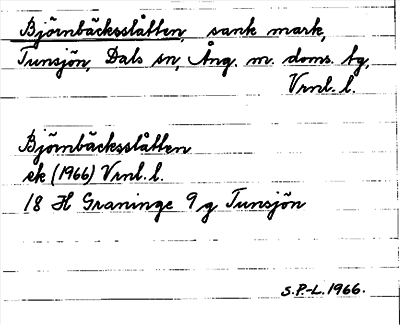 Björnbäcksslåtten, sank mark,
Tunsjön, Dals sn, Ång. m. doms. tg,
Vrnl. l.
Björnbäcksslåtten
ek (1966) Vrnl. l.
18 H Graninge 9 g Tunsjön
S.P.-L. 1966.